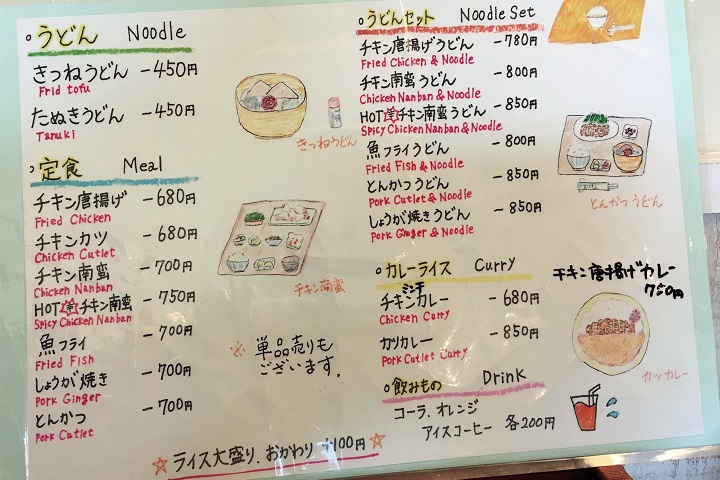 うどん Noodle
きつねうどん -450円
Frid tofu
たぬきうどん -450円
Tanuki
きつねうどん
定食 Meal
チキン唐揚げ -680円
Fried Chicken
チキンカツ -680円
Chicken Cutlet
チキン南蛮 -700円
Chicken Nanban
HOT チキン南蛮 -750円
Spicy Chicken Nanban
魚フライ -700円
Fried Fish
しょうが焼き -700円
Pork Ginger
とんかつ -700円
Pork Cutlet
チキン南蛮
※ 単品売りも
ございます.
うどんセット Noodle Set
チキン唐揚げうどん -780円
Fried Chicken & Noodle
チキン南蛮うどん -800円
Chicken Nanban & Noodle
HOT チキン南蛮うどん -850円
Spicy Chicken Nanban & Noodle
魚フライうどん -800円
Fried Fish & Noodle
とんかつうどん -850円
Pork Cutlet & Noodle
しょうが焼きうどん -850円
Pork Ginger & Noodle
とんかつうどん
カレーライス Curry
ミンチ
チキンカレー -680円
Chicken Curry
カツカレー -850円
Pork Cutlet Curry
チキン唐揚げカレー
750円
カツカレー
飲みもの Drink
コーラ. オレンジ
アイスコーヒー 各200円
☆ ライス大盛り. おかわり +100円 ☆